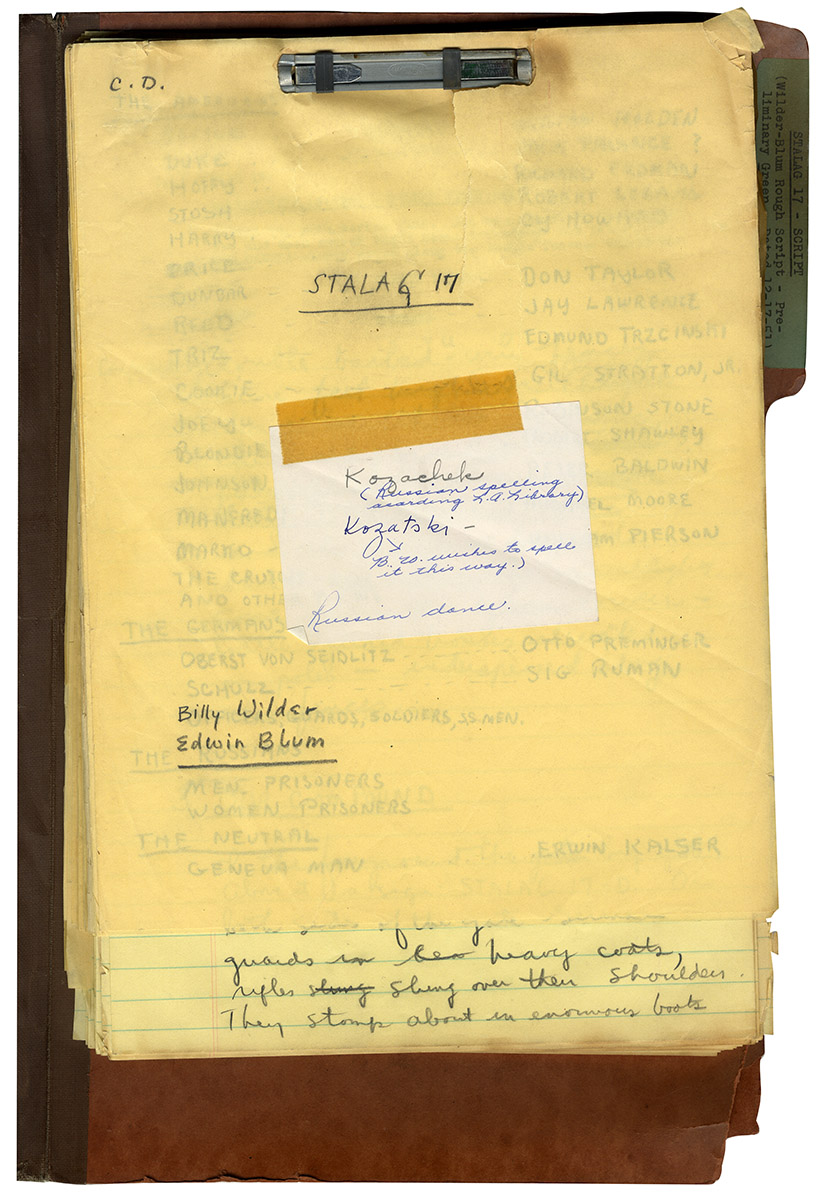 C. D.
STALAG 17 - SCRIPT
(Wilder-Blum Rough Script - Pre-
liminary Green - Dated 12-17-51)
STALAG 17
Kozachek
(Russian spelling
acording L.A. Library)
Kozatski -
B. W. wishes to spell
it this way.)
Russian dance.
Billy Wilder
Edwin Blum
THE AMERICANS
DUKE
HOFFY
STOSH
HARRY
PRICE
DUNBAR
DON TAYLOR
REED
JAY LAWRENCE
TRIZ
EDMUND TRZCINSKI
COOKIE
GIL STRATTON, JR.
JOEY
STONE
BLONDIE
SHAWLEY
JOHNSON
BALDWIN
MANFREDI
MOORE
MARKO
PIERSON
THE
AND OTHER
THE GERMANS
OBERST VON SEIDLITZ
OTTO PREMINGER
SCHULZ
SIG RUMAN
GUARDS, SOLDIERS, MEN.
THE RUSSIANS
MEN PRISONERS
WOMEN PRISONERS
THE NEUTRAL
GENEVA MAN
ERWIN KALSER
guards in heavy coats,
rifles slung slung over their shoulders.
They stomp about in enormous boots